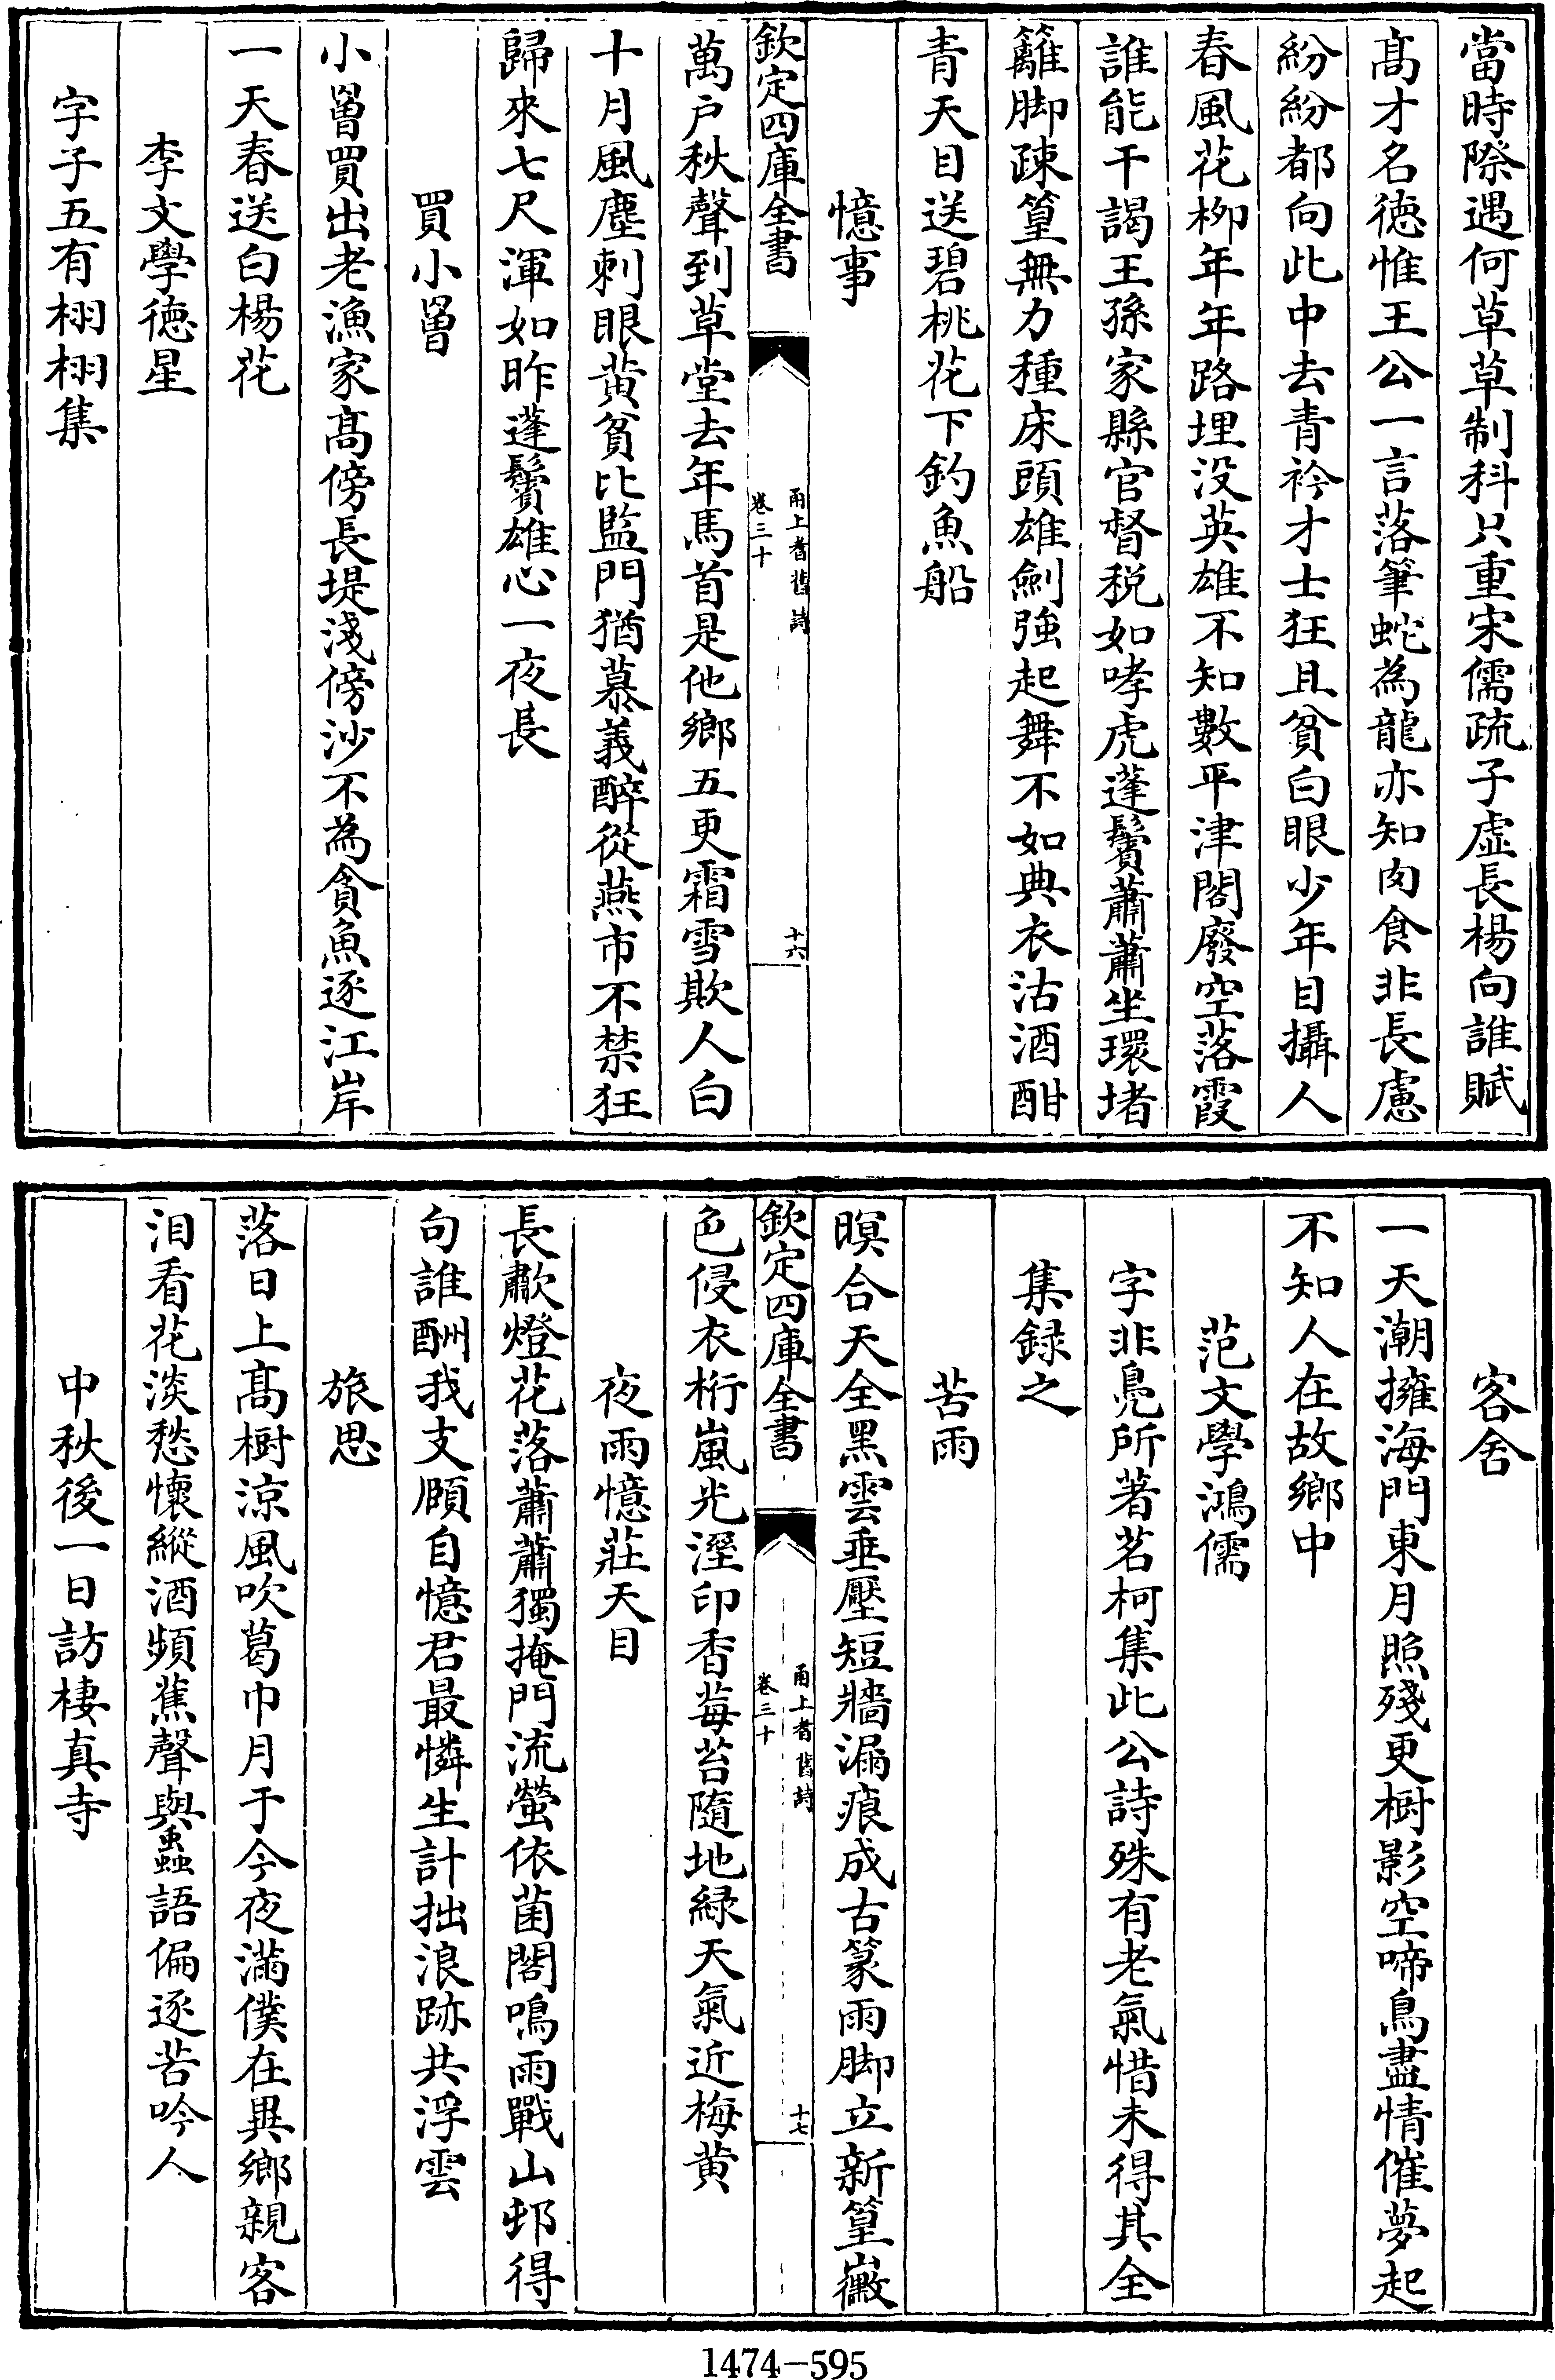 當時際遇何草草制科只重宋儒疏子虚長楊向誰賦
髙才名徳惟王公一言落筆蛇為龍亦知肉食非長慮
紛紛都向此中去青衿才士狂且貧白眼少年目攝人
春風花柳年年路埋没英雄不知數平津閣廢空落霞
誰能干謁王孫家縣官督税如哮虎蓬鬢蕭蕭坐環堵
籬脚疎篁無力種床頭雄劍強起舞不如典衣沽酒酣
青天目送碧桃花下釣魚船
憶事
欽定四庫全書
甬上耆舊詩
卷三十
十六
萬户秋聲到草堂去年馬首是他鄉五更霜雪欺人白
十月風塵刺眼黄貧比監門猶慕義醉從燕市不禁狂
歸來七尺渾如昨蓬鬢雄心一夜長
買小罾
小罾買出老漁家髙傍長堤淺傍沙不為貪魚逐江岸
一天春送白楊花
李文學徳星
字子五有栩栩集
客舍
一天潮擁海門東月照殘更樹影空啼鳥盡情催夢起
不知人在故鄉中
范文學鴻儒
字非凫所著茗柯集此公詩殊有老氣惜未得其全
集録之
苦雨
暝合天全黑雲垂壓短牆漏痕成古篆雨脚立新篁黴
欽定四庫全書
甬上耆舊詩
卷三十
十七
色侵衣桁嵐光溼印香莓苔隨地緑天氣近梅黄
夜雨憶莊天目
長歗燈花落蕭蕭獨掩門流螢依菌閣鳴雨戰山邨得
句誰酬我支頤自憶君最憐生計拙浪跡共浮雲
旅思
落日上髙樹涼風吹葛巾月于今夜滿僕在異鄉親客
泪看花淡愁懷縱酒頻蕉聲與蟲語偏逐苦吟人
中秋後一日訪棲真寺
1474-595